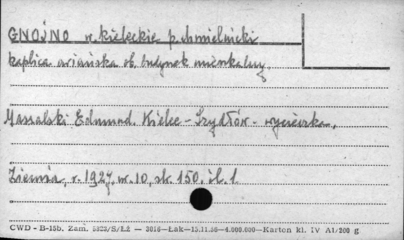 GNOJNO w. kieleckie p. chmielnicki
kaplica ariańska ob. budynek mieszkalny.
Massalski Edmund. Kielce - Szydłów - wycieczka,
Ziemia, r. 1927, nr. 10, str. 150, il. 1
CWD - B-15b. Zam. 5823/S/Łż — 3016—Łak—15.11.56—4.000.000—Karton kl. IV A1/200 g